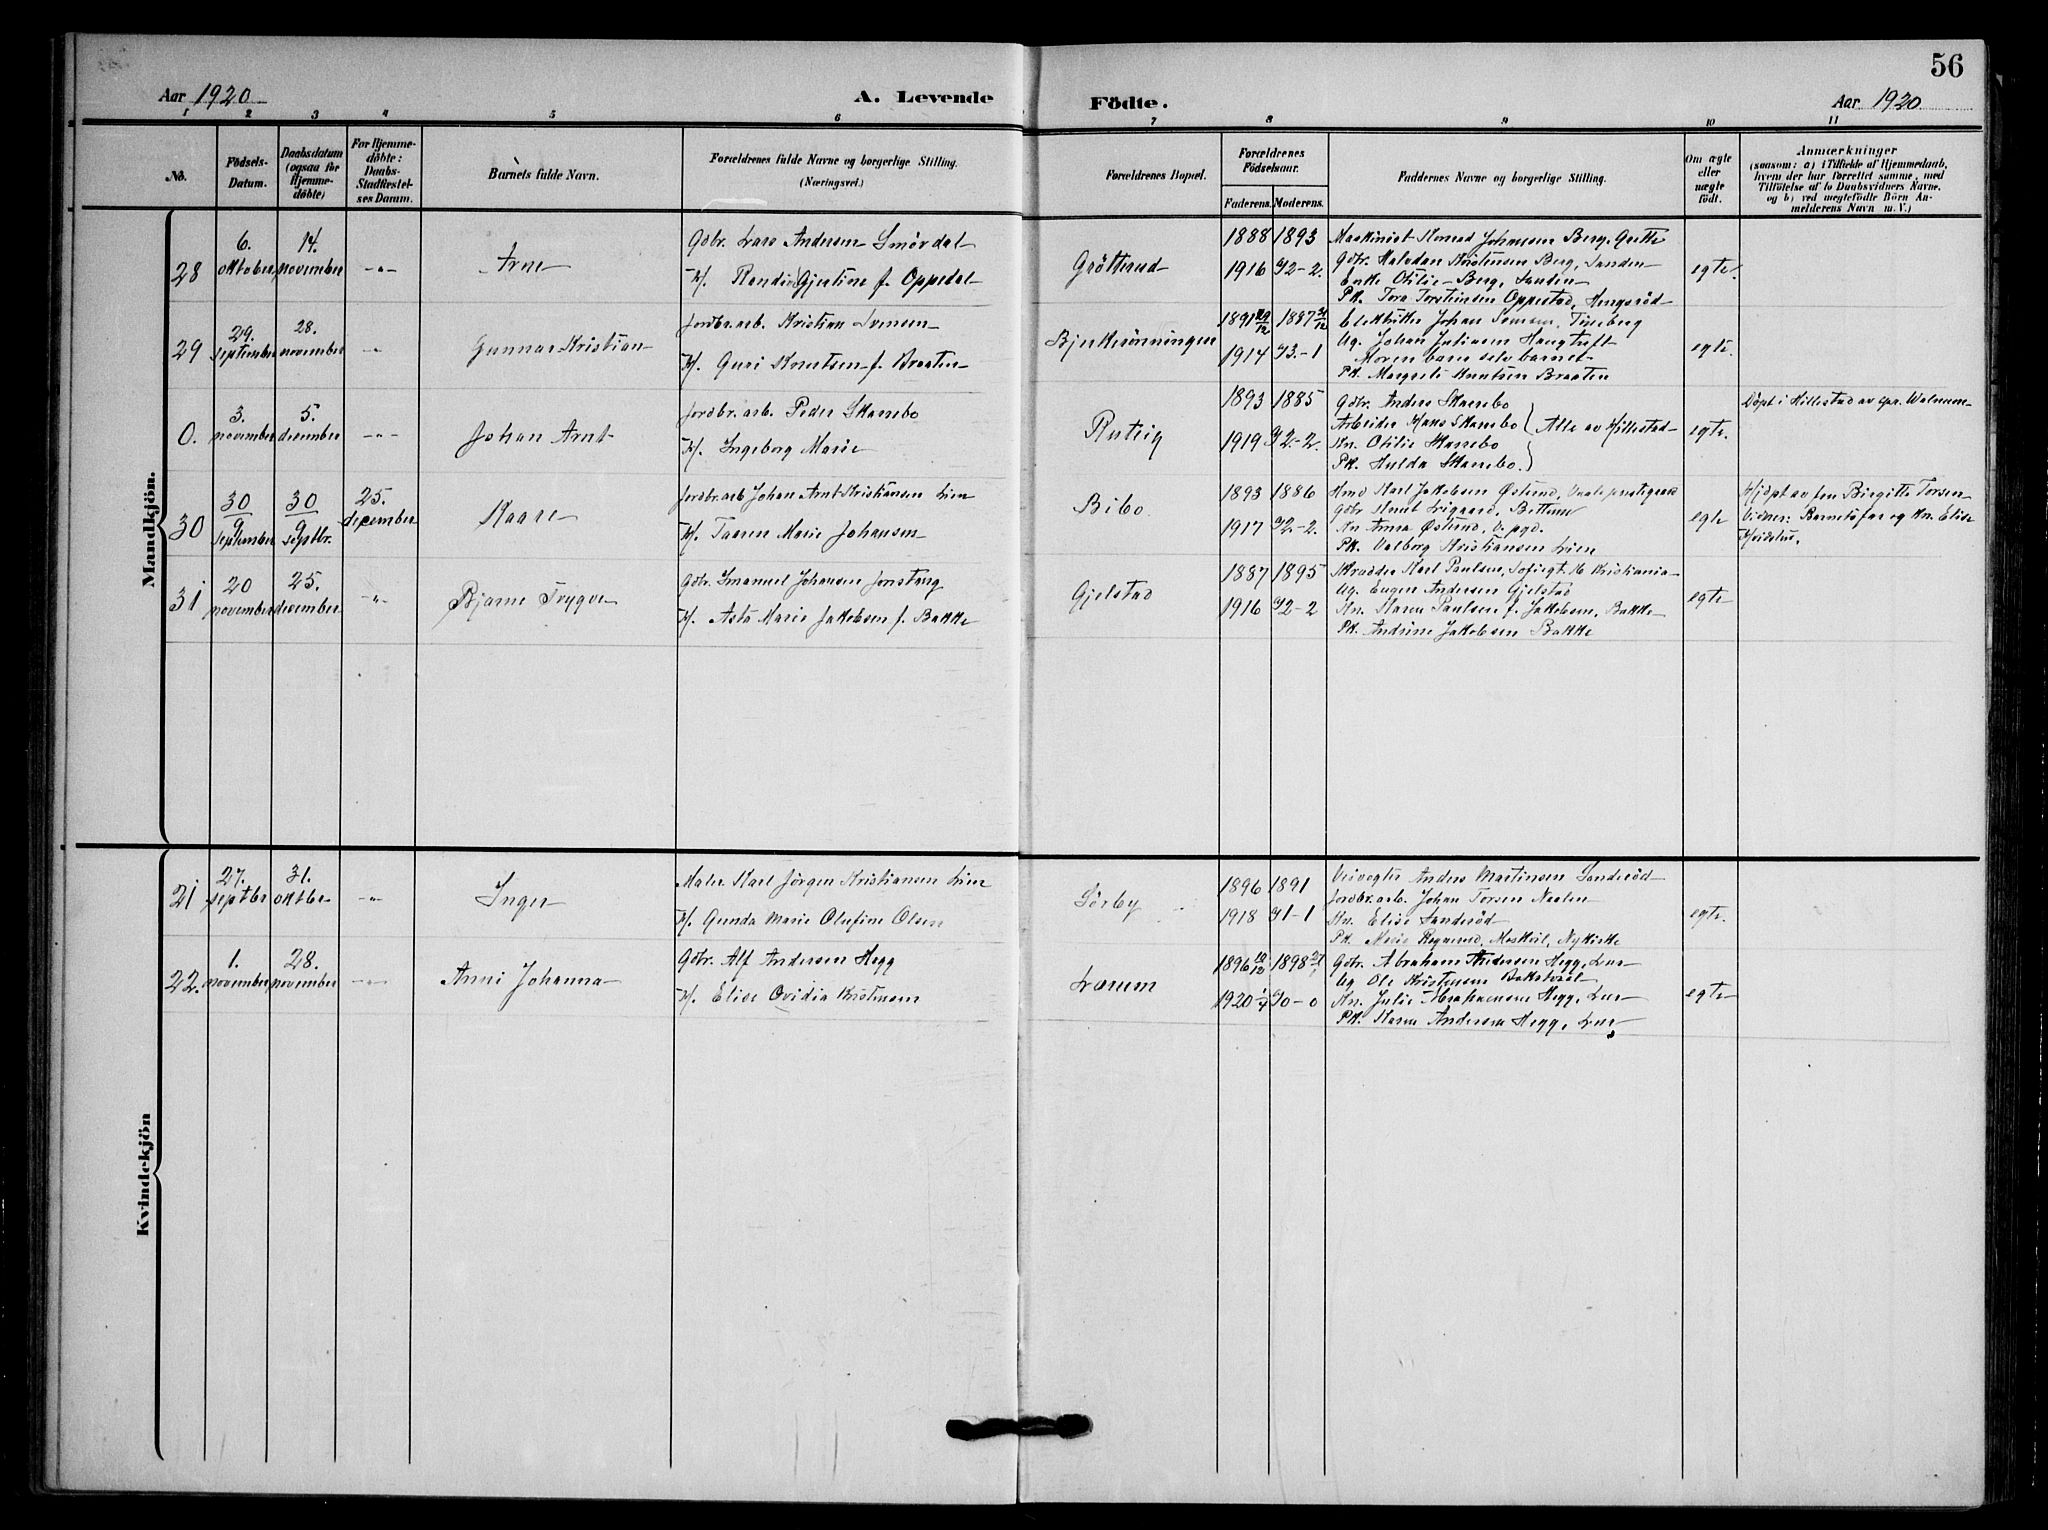 56
Aar 1920
A. Levende
Födte.
Aar 1920
1 2 3 4 5 6 7 8 9 10 11
No.
Födsels-
Datum.
Daabsdatum
(ogsaa for
Hjemme-
döbte)
For Hjemme-
döbte:
Daabs-
Stadfæstel-
ses Datum.
Barnets fulde Navn.
Forældrenes fulde Navne og borgerlige Stilling.
(Næringsvei.)
Forældrenes Bopæl.
Forældrenes
Födselsaar.
Faderens. Moderens.
Faddernes Navne og borgerlige Stilling.
Om ægte
eller
uægte
födt.
Anmærkninger
(saasom: a) i Tilfælde af Hjemmedaab,
hvem der har forrettet samme, med
Tilföielse af to Daabsvidners Navne.
og b) ved uægtefödte Börn An-
melderens Navn m. V.)
Mandkjön.
28
6.
oktober
14.
november
-"-
Arne
Gdbr. Lars Andersen Smördal
H/. Randi Gjertine f. Oppedal
Grötterud
1888 1893
1916 G2-2.
Maskinist Konrad Johansen Berg,
Gdbr. Halvdan Kristensen Berg, Sanden
Enke Otilie Berg, Sanden
Pk. Tora Torstensen Oppestad, Hengsröd
egte.
29
29.
september
28.
november
-"-
Gunnar Kristian
Jordbr.arb. Kristian Svensen
H/. Guri Knutsen f. Braaten
Bjerkerönningen
1891 29/12 1887 31/12
1914 G3.-1
Johan Svensen, Tönsberg
Ug. Johan Juliusen Haugtuft
Moren barer selv barnet
Pk. Margrete Knutsen Braaten
egte.
0.
3.
november
5.
december
-"-
Johan Arnt
Jordbr.arb. Peder Skarrebo
H/. Ingeborg Marie
Rutsig
1893 1885
1919 G2.-2.
Gdbr. Anders Skarrebo
Arbeider Hans Skarrebo Alle av Hillestad
Kn. Otilie Skarrebo
Pk. Hulda Skarrebo.
egte.
Döpt i Hillestad av spr. Walnum
30
30/9
september
30/9
septbr.
25.
december
Kaare
Jordbr.arb Johan Arnt Kristiansen Lien
H/. Taaren Marie Johansen
Bibo
1893 1886
1917 G2-2.
Hmd Karl Jakobsen Østend, Vaale prestegjeld
Gdbr Knut Lisgaard, Bettum
Kn Anna Østend, V. pgd.
Pk. Valborg Kristiansen Lien
egte
Hjdöpt av fru Birgitte Torsen
Vidner: Barnets far og Kn. Elise
31
20
november
25.
december
-"-
Bjarne Trygve
Gdbr. Emanuel Johansen Jonstang
H/. Asta Marie Jakobsen f. Bakke
Gjelstad
1887 1895
1916 G2-2
Skrædder Karl Paulsen, Sofiegt. Kristiania
Ug. Eugen Andersen Gjelstad
Kn. Karen Paulsen f. Jakobsen, Bakke
Pk. Andrine Jakobsen Bakke
egte
Kvindekjön
21
27.
septbr
31.
oktbr
-"-
Inger
Maler Karl Jörgen Kristiansen Lien
H/. Gunda Marie Olufine Olsen
Sörby
1896 1891
1918 G1-1
Veivogter Anders Martinsen Sanderöd
Jordbr.arb. Johan Torsen Naalen
Kn. Elise Sanderöd
Pk. Marie Rognerud, Moskvil, Nykirke
egte.
22.
1.
november
28.
november
-"-
Anni Johanna
Gdbr. Alf Andersen Hegg
H/. Elise Ovidia Kristensen
Lærum
1896 12/12 1898
1920 1/4 G0-0
Gdbr. Abraham Andersen Hegg, Lur
Ug Ole Kristensen Bakskvæl
Kn. Julie Abrahamsen Hegg, Lur
Pk. Karen Andersen Hegg, Lur
egte